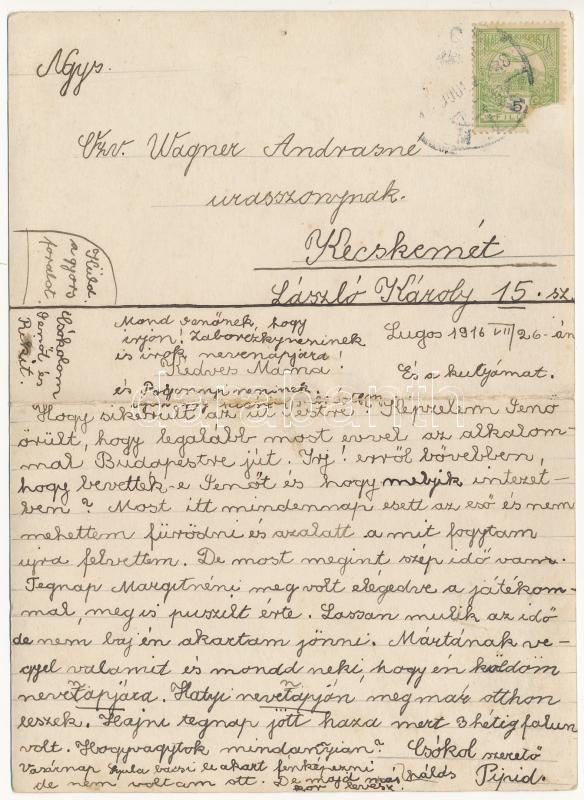 Ngys.
Özv. Wagner Andrasne
uraszonynak.
Kecskemét
László Károly 15. sz.
Küld
a gyors
forralót.
Csókolom
Jenőt és
Mond Jenőnek, hogy
irjon! Zaboreczkyneninek
is irok nevenapjára!
és Pozsonyi neninek.
Lugos 1916 VII/26-án
Kedves Mama
És a kutyámat.
Hogy sikerült az út Pestre! Kepzelem Jenő
örült, hogy legalább most evvel az alkalom-
mal, Budapestre jút. Irj! erről bővebben,
hogy bevettek-e Jenőt és hogy melyik intezet-
ben? Most itt mindennap esett az eső és nem
mehettem fürödni és azalatt a mit fogytam
ujra felvettem. De most megint szép idő van.
Tegnap Margitnéni meg volt elegedve a játékom-
mal, meg is puszilt erte. Lassan mulik az idő
de nem baj én akartam jönni. Mártának ve-
gyel valamit és mondd neki, hogy én küldöm
nevenapjára. Hatyi nevenapján, megmár otthon
leszek. Hajni tegnap jött haza mert 3 hétig falun
volt. Hogyvagytok mindanyian? Csókol szerető
Vasárnap Gyula bácsi le akart fenképezni
de nem voltam ott. De majd mas
kor levesz. Pipid.